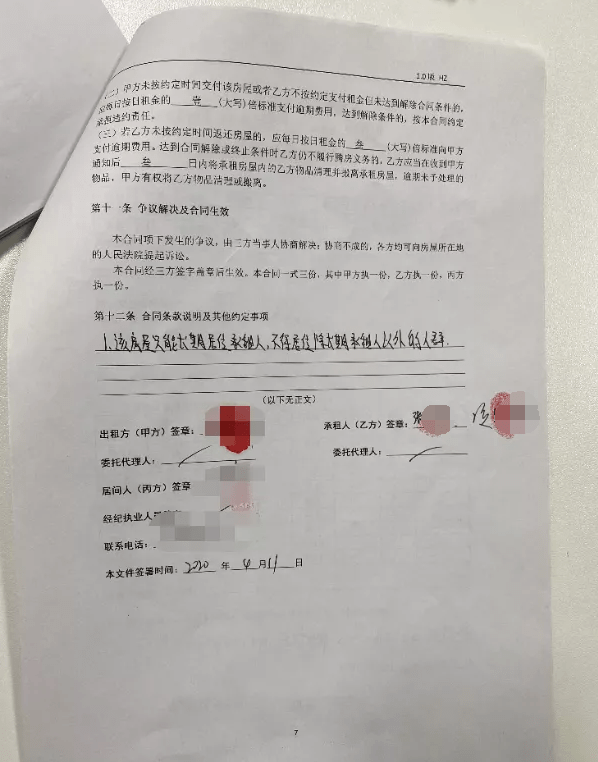 1.01版 HZ
(二)甲方未按约定时间交付该房屋或者乙方不按约定支付租金但未达到解除合同条件的,
应每日按日租金的 壹 (大写)倍标准支付逾期费用,达到解除条件的,按本合同约定
承担违约责任。
(三)若乙方未按约定时间返还房屋的,应每日按日租金的 叁 (大写)倍标准向甲方
支付逾期费用。达到合同解除或终止条件时乙方仍不履行腾房义务的,乙方应当在收到甲方
通知后 叁 日内将承租房屋内的乙方物品清理并搬离承租房屋,逾期未予处理的
物品,甲方有权将乙方物品清理或搬离。
第十一条 争议解决及合同生效
本合同项下发生的争议,由三方当事人协商解决;协商不成的,各方均可向房屋所在地
的人民法院提起诉讼。
本合同经三方签字盖章后生效。本合同一式三份,其中甲方执一份,乙方执一份,丙方
执一份。
第十二条 合同条款说明及其他约定事项
1.该房屋只能长期居住承租人,不得居住除长期承租人以外的人
(以下无正文)
出租方(甲方)签章:
承租人(乙方)签章:
委托代理人:
委托代理人:
居间人(丙方)签章
经纪执业人
联系电话:
本文件签署时间:2020 年 4 月 11 日
7